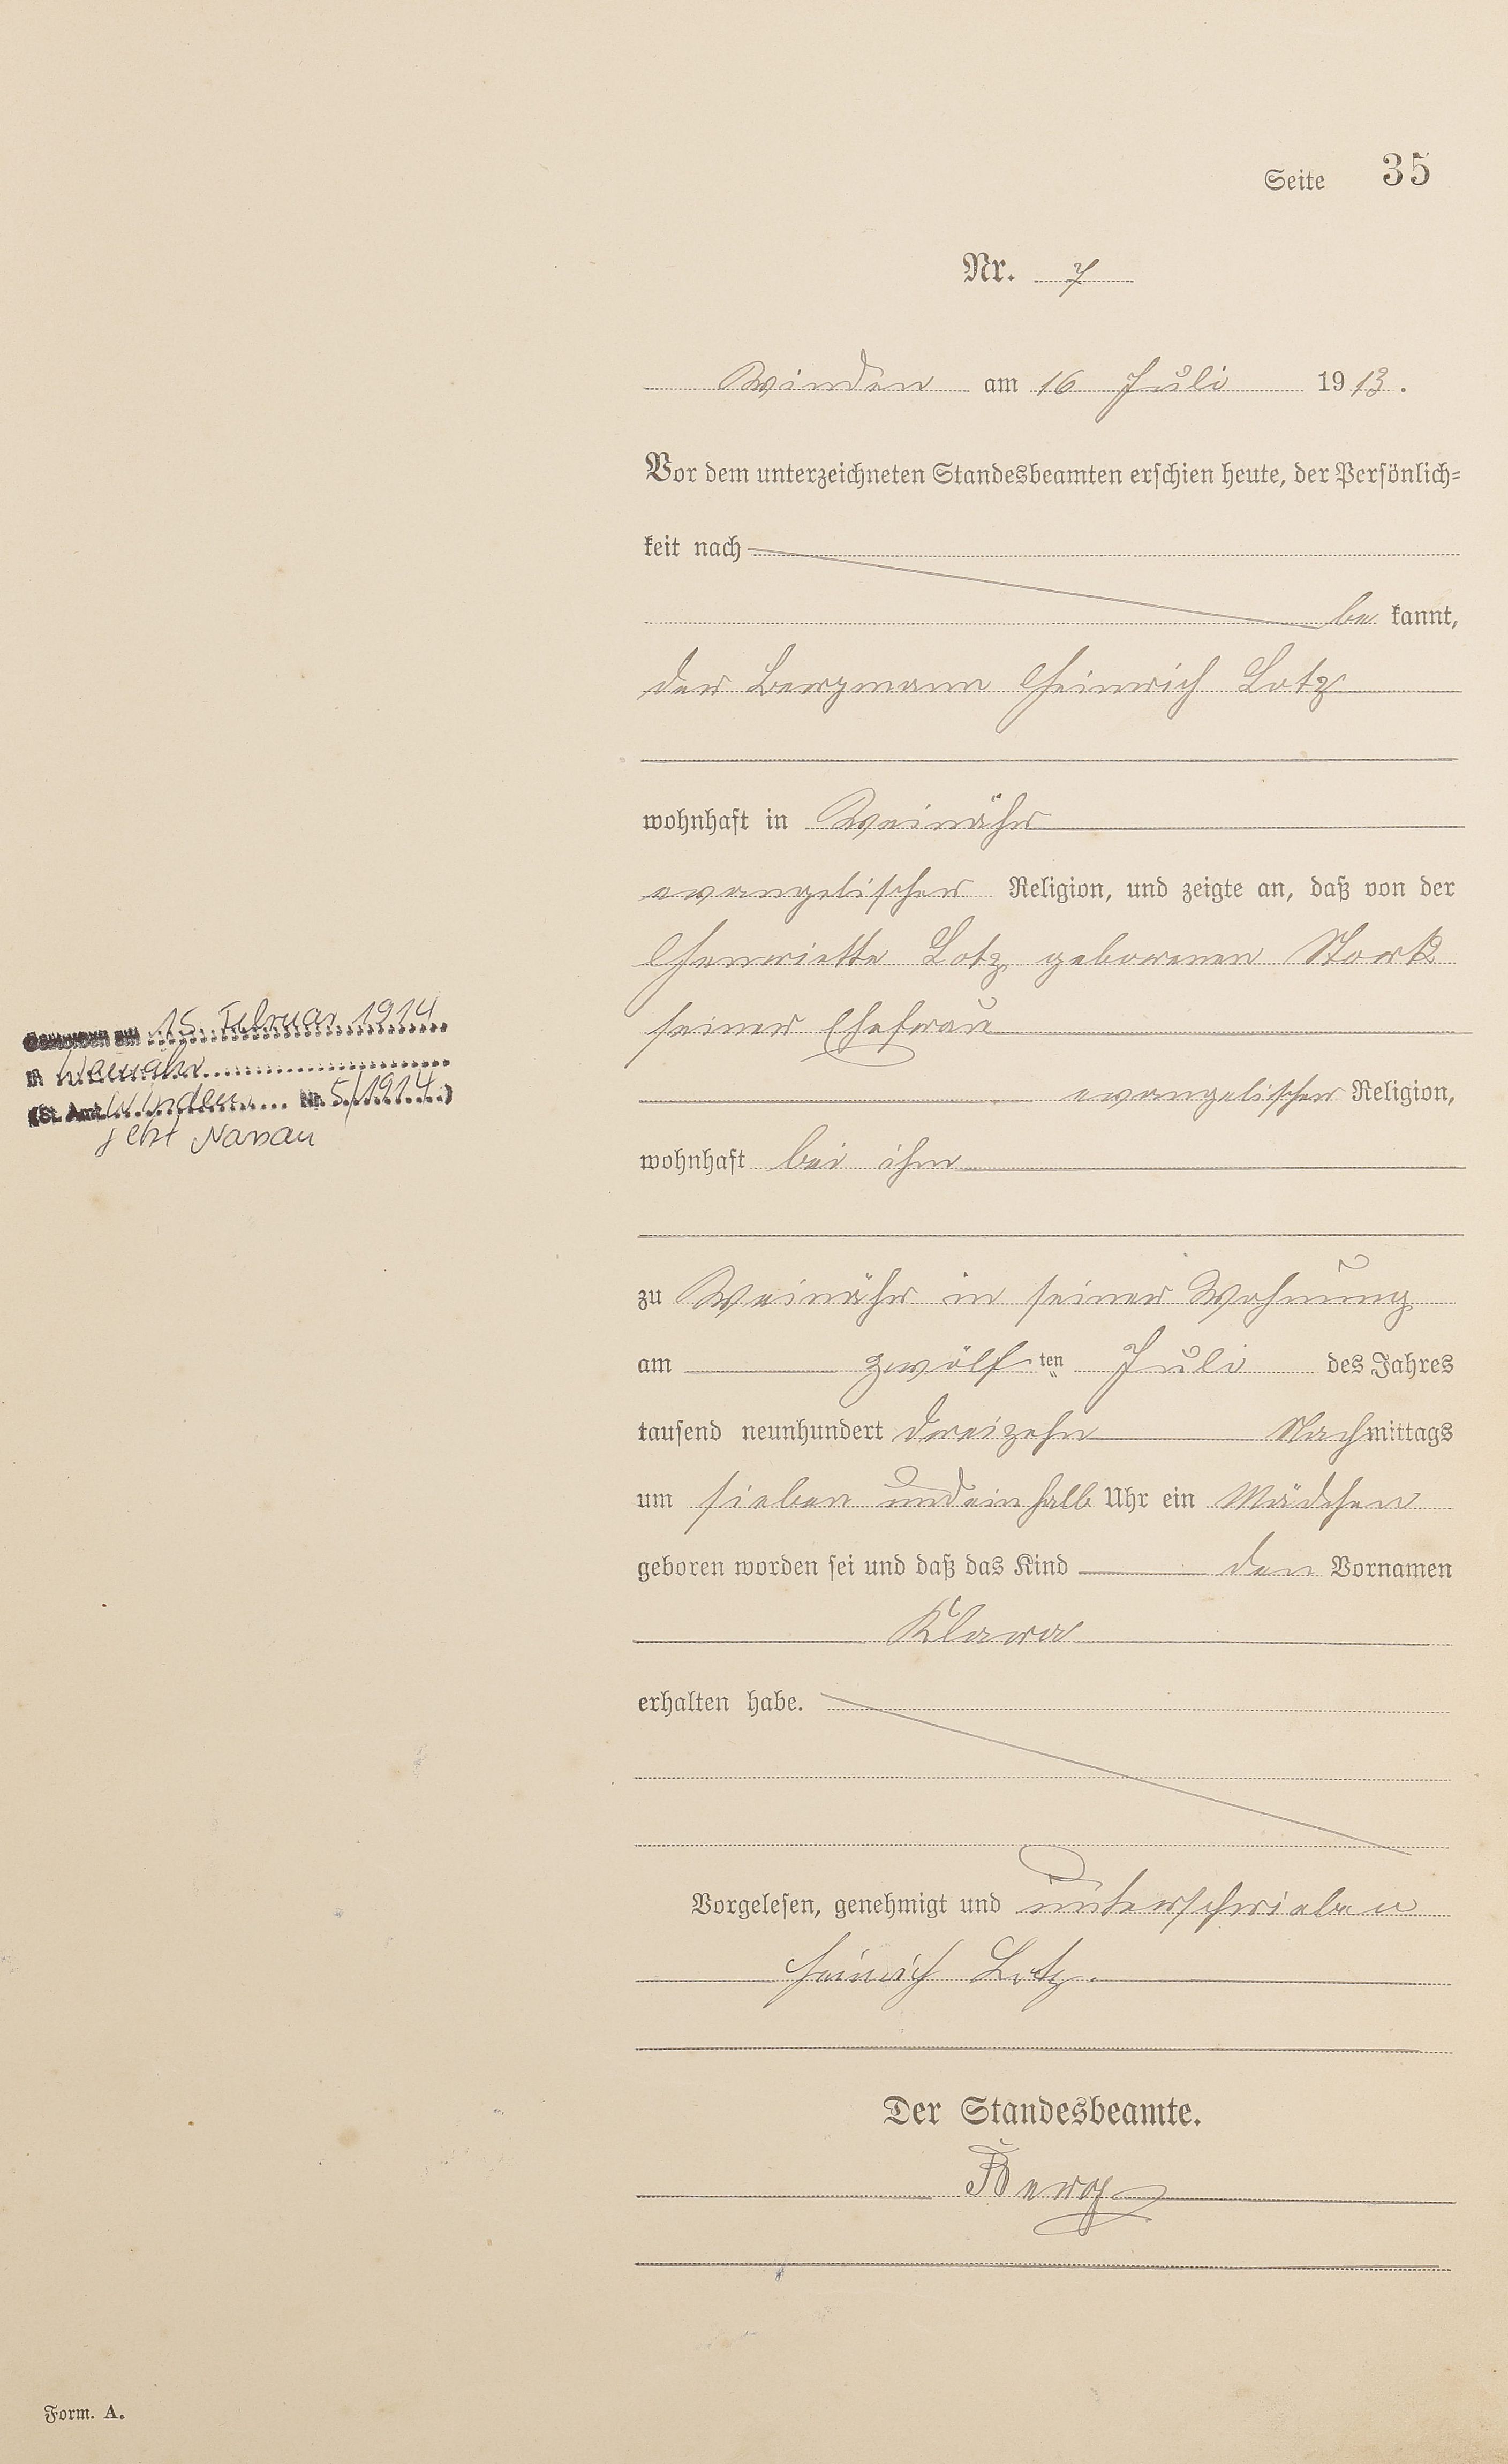 Seite 35
Nr. 7
Winden am 16 Juli 1913.
Vor dem unterzeichneten Standesbeamten erschien heute, der Persönlich=
keit nach
be kannt,
der Bergmann Heinrich Lotz
wohnhaft in Weinähr
evangelischer Religion, und zeigte an, daß von der
Henriette Lotz geborenen Stork
seiner Ehefrau
evangelischer Religion,
wohnhaft bei ihm
zu Weinähr in seiner Wohnung
am zwölf ten Juli des Jahres
tausend neunhundert dreizehn Nachmittags
um sieben undein halb Uhr ein Mädchen
geboren worden sei und daß das Kind den Vornamen
Klara
erhalten habe.
Vorgelesen, genehmigt und unterschrieben
Heinrich Lotz.
Der Standesbeamte.
Berg
Gestorben am 15. Februar 1914
in Weinähr
(St. Amt Winden Nr. 5/1914)
jetzt Nassau
Form. A.